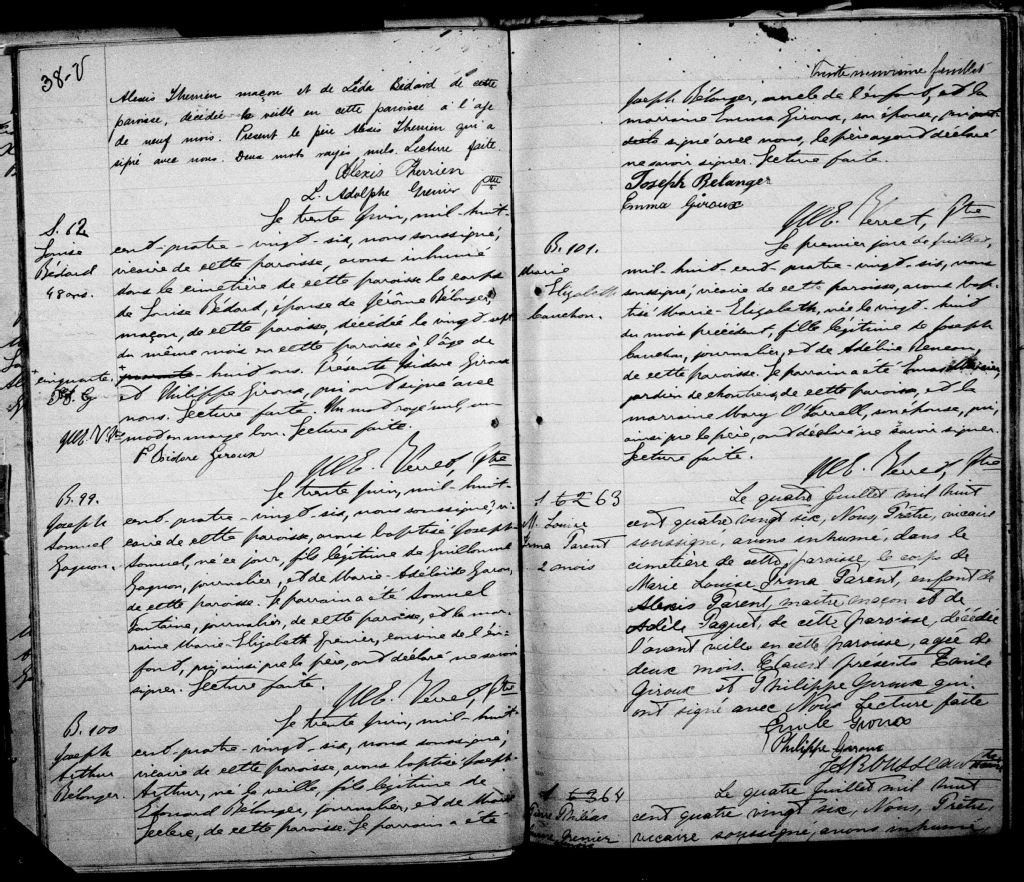 38-V
Alexis Therrien maçon et de Léda Bédard de cette
paroisse, décédé la veille en cette paroisse à l'age
de neuf mois. Présent le père Alexis Therrien qui a
signé avec nous. Deux mots rayés nuls. Lecture faite
Alexis Therrien
L. Adolphe Grenier Ptre
S. 62
Louise
Bédard
48 ans.
Le trente Juin, mil-huit-
cent-quatre-vingt-six, nous soussigné,
vicaire de cette paroisse, avons inhumé
dans le cimetière de cette paroisse le corps
de Louise Bédard, épouse de Jérôme Bélanger,
maçon, de cette paroisse, décédée le vingt-sept
du même mois en cette paroisse à l'âge de
+ cinquante
huit ans. Présents Isidore Giroux
et Philippe Giroux, qui ont signé avec
nous. Lecture faite. Un mot rayé nul, un
mot en marge bon. Lecture faite.
F Isidore Giroux
J.E. Verret, Ptre
B. 99.
Joseph
Samuel
Gagnon.
Le trente Juin, mil-huit-
cent-quatre-vingt-six, nous soussigné, vi-
caire de cette paroisse, avons baptisé Joseph
Samuel, né ce jour, fils légitime de Guillaume
Gagnon, journalier, et de Marie-Adélaïde Garon,
de cette paroisse. Le parrain a été Samuel
Fontaine, journalier, de cette paroisse, et la mar-
raine Marie-Elizabeth Grenier, cousine de l'en-
fant, qui ainsi que le père, ont déclaré ne savoir
signer. Lecture faite.
J.E. Verret, Ptre
B. 100
Joseph
Arthur
Bélanger.
Le trente Juin, mil-huit-
cent-quatre-vingt-six, nous soussigné,
vicaire de cette paroisse, avons baptisé Joseph
Arthur, né la veille, fils légitime de
Edouard Bélanger, journalier, et de Marie
de cette paroisse. Le parrain a été
feuillet
Joseph Bélanger, oncle de l'enfant, et la
marraine Emma Giroux, son épouse, qui ont
signé avec nous, le père ayant déclaré
ne savoir signer. Lecture faite.
Joseph Belanger
Emma Giroux
J.E. Verret, Ptre
B. 101.
Marie
Elizabeth
Cauchon.
Le premier jour de Juillet,
mil-huit-cent-quatre-vingt-six, nous
soussigné, vicaire de cette paroisse, avons bap-
tisé Marie-Elizabeth, née le vingt-huit
du mois précédent, fille légitime de Joseph
Cauchon, journalier, et de Adélie
de cette paroisse. Le parrain a été
gardien de chantiers, de cette paroisse, et la
marraine Mary O'Farrall, son épouse, qui,
ainsi que le père, ont déclaré ne savoir signer.
Lecture faite.
J.E. Verret, Ptre
S 62 63
M. Louise
Irma Parent
2 mois
Le quatre Juillet mil huit
cent quatre vingt six, Nous, Prêtre, vicaire
soussigné, avons inhumé, dans le
cimetière de cette paroisse, le corps de
Marie Louise Irma Parent, enfant de
Alexis Parent, maître maçon et de
Adèle Paquet, de cette paroisse, décédée
l'avant veille en cette paroisse, agée de
deux mois. Etaient présents Emile
Giroux et Philippe Giroux qui
ont signé avec Nous Lecture faite
Emile Giroux
Philippe Giroux
Rousseau
64
Pierre Philéas
Grenier
Le quatre Juillet mil huit
cent quatre vingt six, Nous, Prêtre,
vicaire soussigné, avons inhumé,